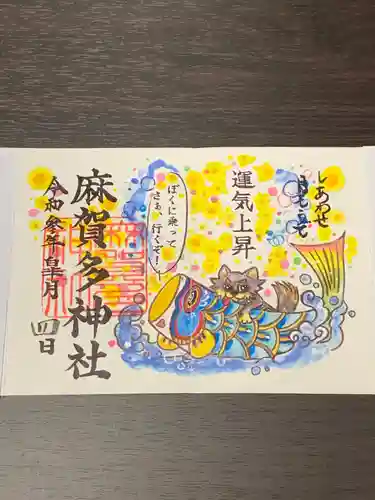 しあわせ
運気上昇
ぼくに乗って
さぁ、行くぞ!
麻賀多神社
令和参年皐月
四日